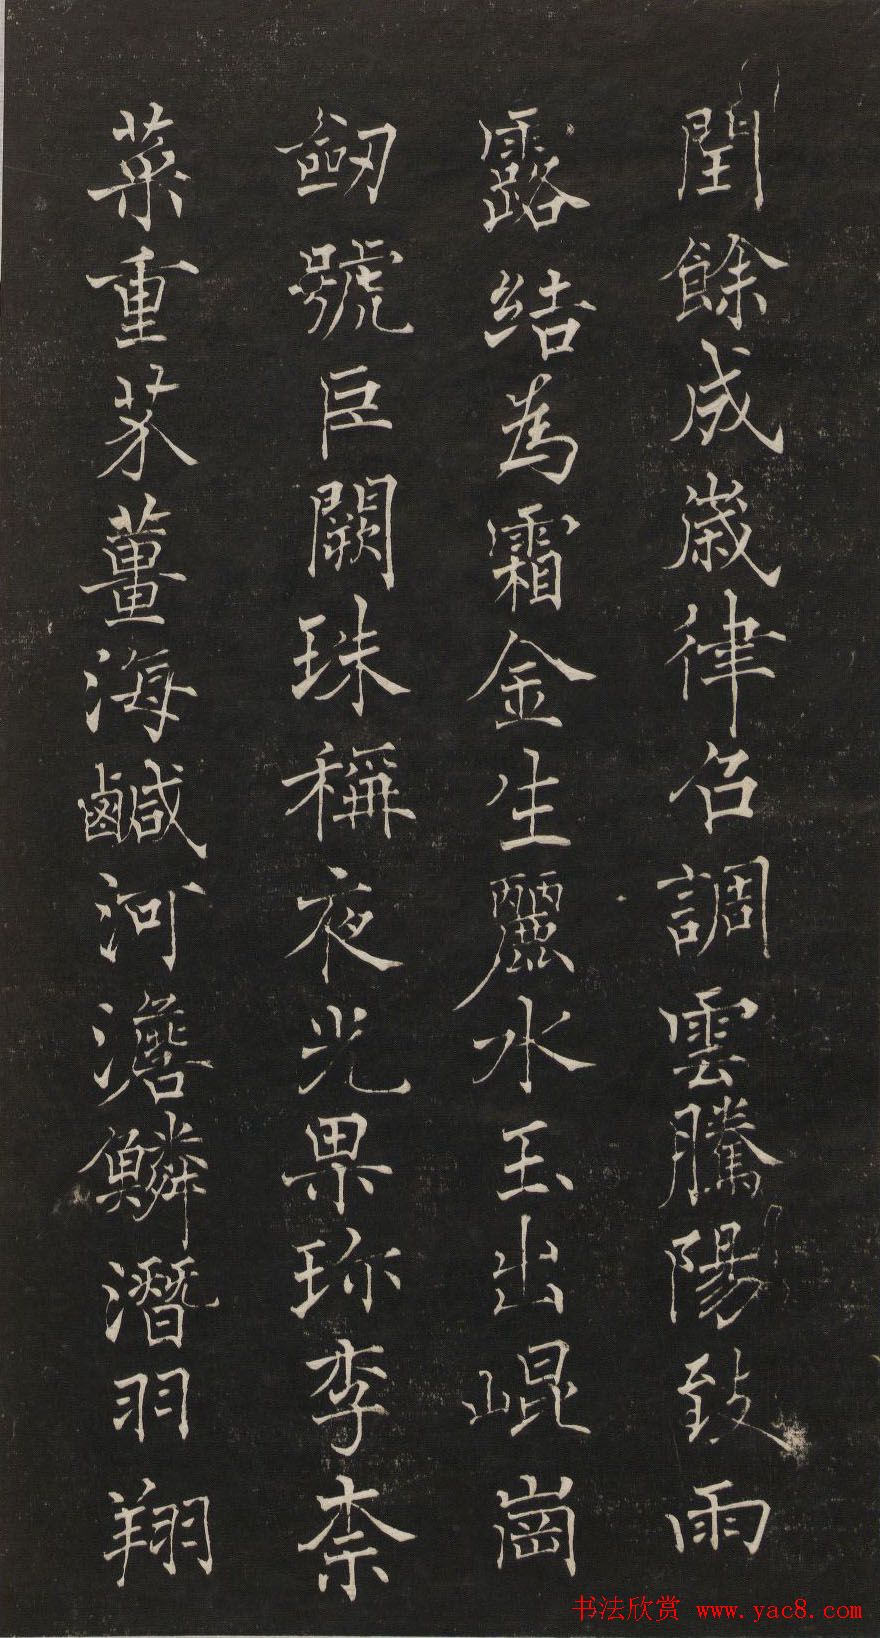 閏餘成歲律召調雲騰陽致雨
露結為霜金生麗水玉出崐崗
劒號巨闕珠稱夜光果珎李柰
菜重芥薑海鹹河澹鱗潛羽翔
书法欣赏 www.yac8.com